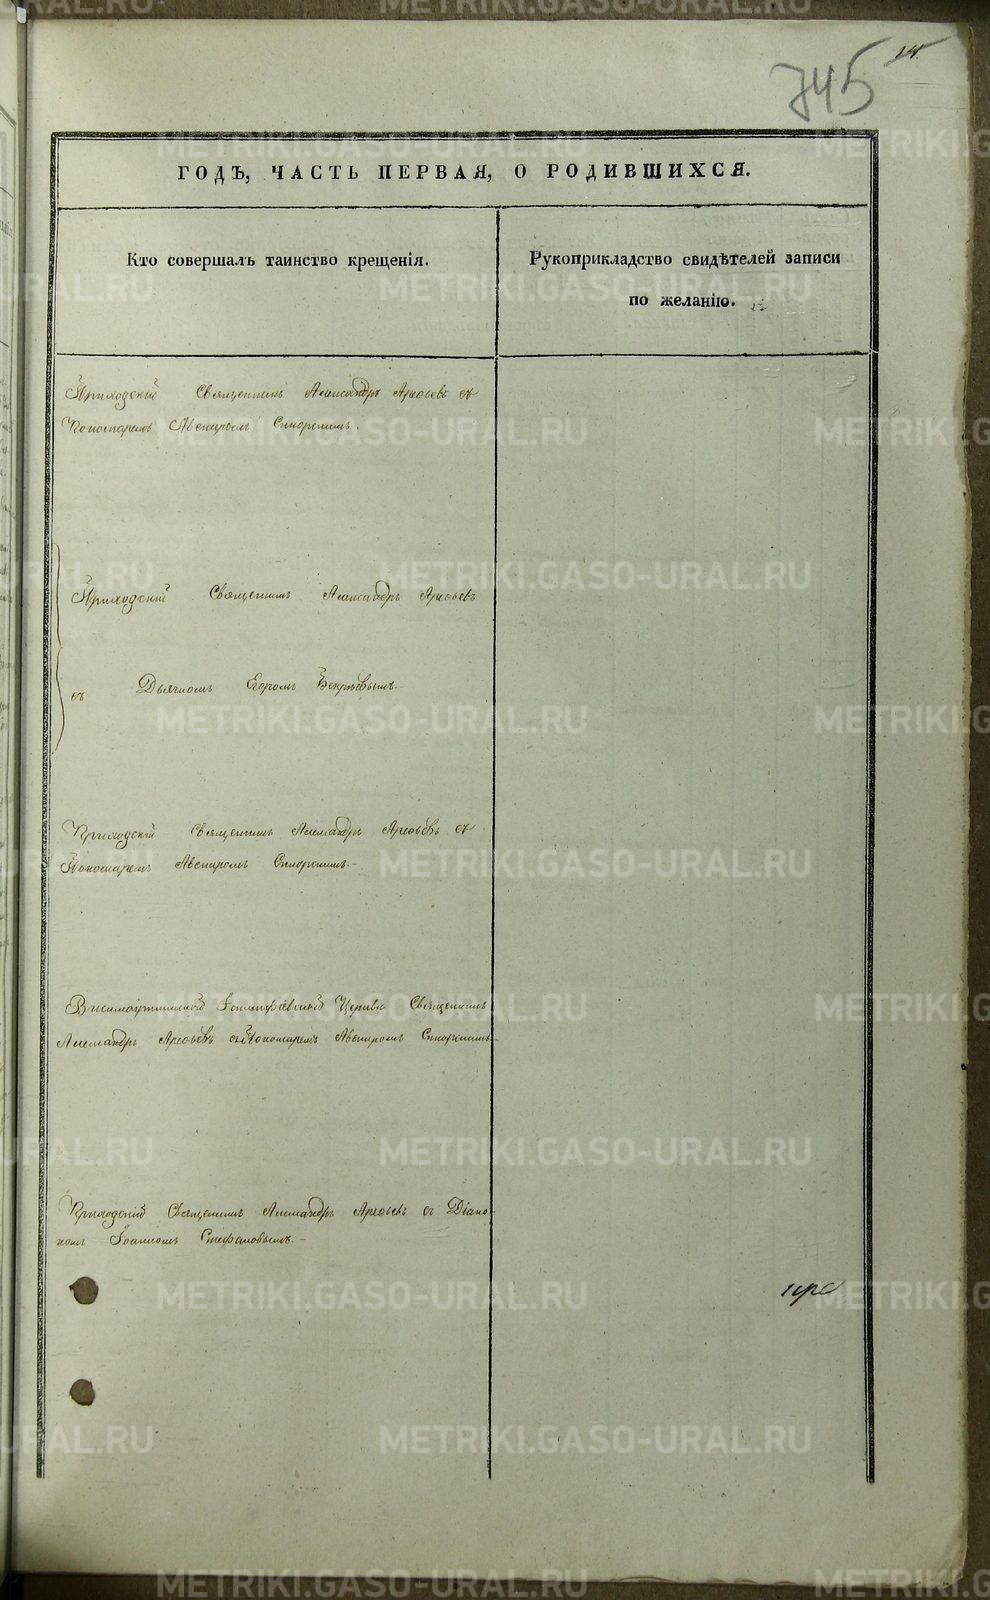 745
14.
ГОДЪ, ЧАСТЬ ПЕРВАЯ, О РОДИВШИХСЯ.
Кто совершалъ таинство крещенія.
Рукоприкладство свидѣтелей записи
по желанію.
Приходскій Священникъ Александръ Арефьевъ съ
Пономаремъ Авениромъ Сторожимъ.
Приходскій Священникъ Александръ Арефьевъ
съ Дьячкомъ Егоромъ
Приходскій Священникъ Александръ Арефьевъ съ
Пономаремъ Авениромъ
Церкви Священникъ
Александръ Арефьевъ съ Пономаремъ Авениромъ
Приходскій Священникъ Александръ Арефьевъ съ Діако-
номъ Іоанномъ Стефановымъ.
METRIKI.GASO-URAL.RU